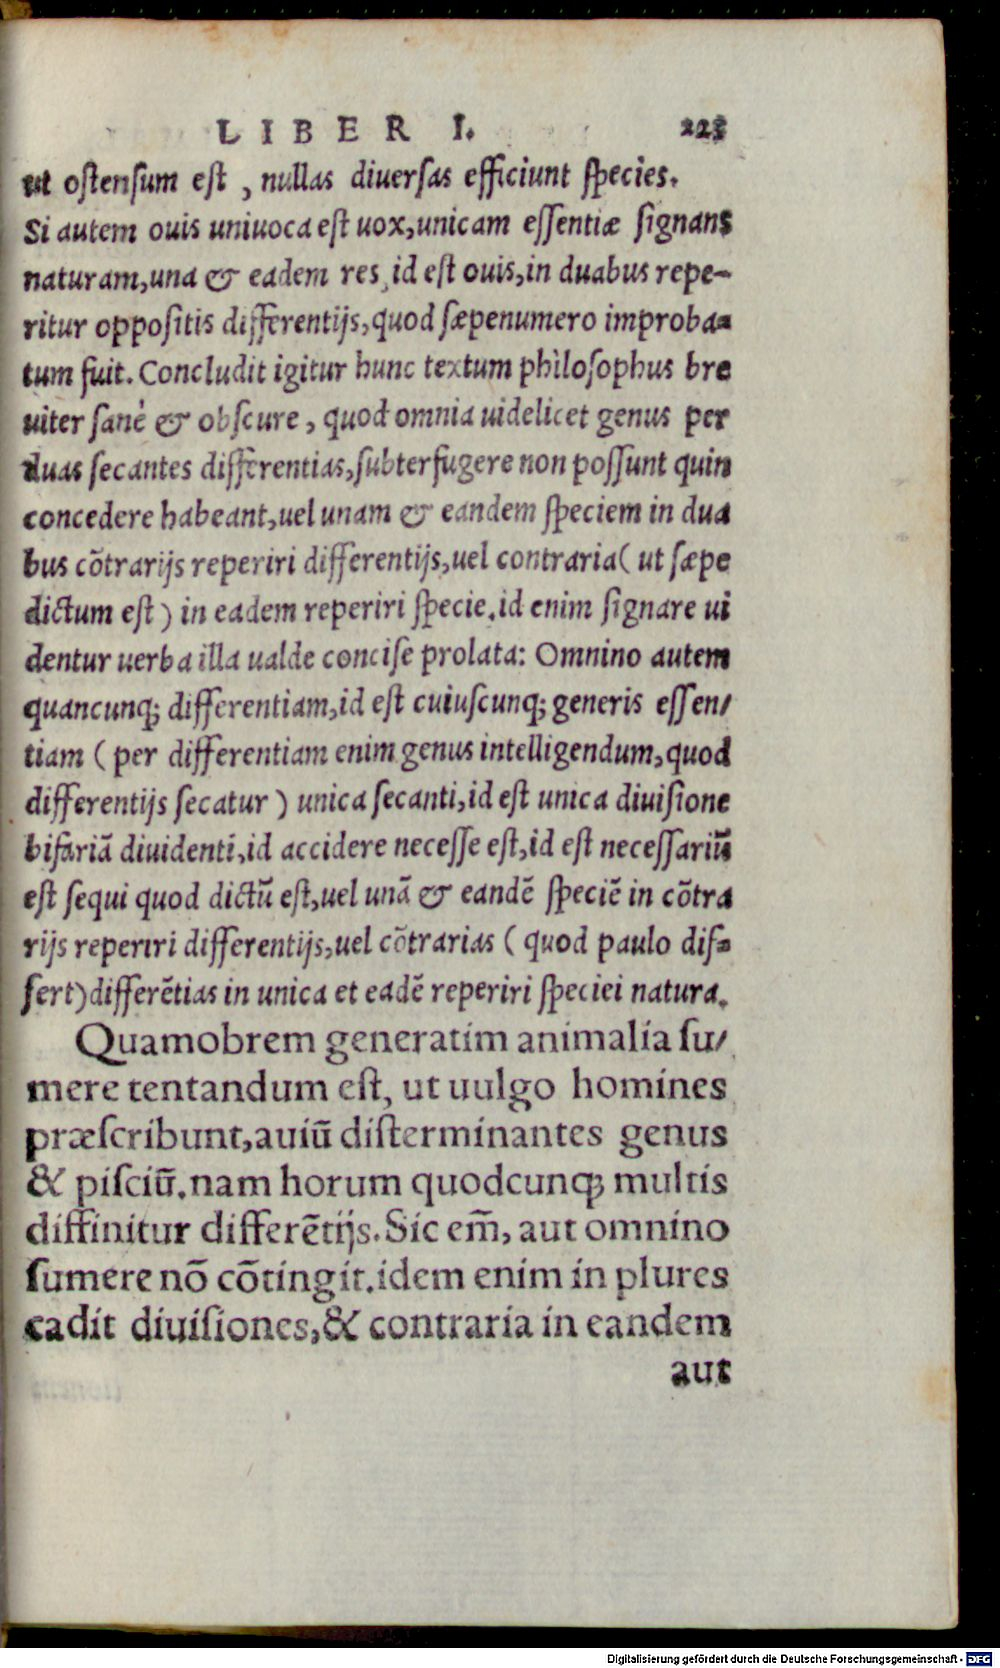 LIBER I. 223
ut ostensum est, nullas diuersas efficiunt species.
Si autem ouis uniuoca est uox, unicam essentiæ signans
naturam, una & eadem res, id est ouis, in duabus repe-
ritur oppositis differentijs, quod sæpenumero improba-
tum fuit. Concludit igitur hunc textum philosophus bre
uiter sanè & obscure, quod omnia uidelicet genus per
duas secantes differentias, subterfugere non possunt quin
concedere habeant, uel unam & eandem speciem in dua
bus cõtrarijs reperiri differentijs, uel contraria ( ut sæpe
dictum est ) in eadem reperiri specie. id enim signare ui
dentur uerba illa ualde concise prolata: Omnino autem
quancunq; differentiam, id est cuiuscunq; generis essen/
tiam ( per differentiam enim genus intelligendum, quod
differentijs secatur ) unica secanti, id est unica diuisione
bifariã diuidenti, id accidere necesse est, id est necessariũ
est sequi quod dictũ est, uel unã & eandẽ speciẽ in cõtra
rijs reperiri differentijs, uel cõtrarias ( quod paulo dif-
fert) differẽtias in unica et eadẽ reperiri speciei natura.
Quamobrem generatim animalia su/
mere tentandum est, ut uulgo homines
præscribunt, auiũ disterminantes genus
& pisciũ. nam horum quodcunq; multis
diffinitur differẽtijs. Sic em̃, aut omnino
sumere nõ cõtingit. idem enim in plures
cadit diuisiones, & contraria in eandem
aut
Digitalisierung gefördert durch die Deutsche Forschungsgemeinschaft - DFG